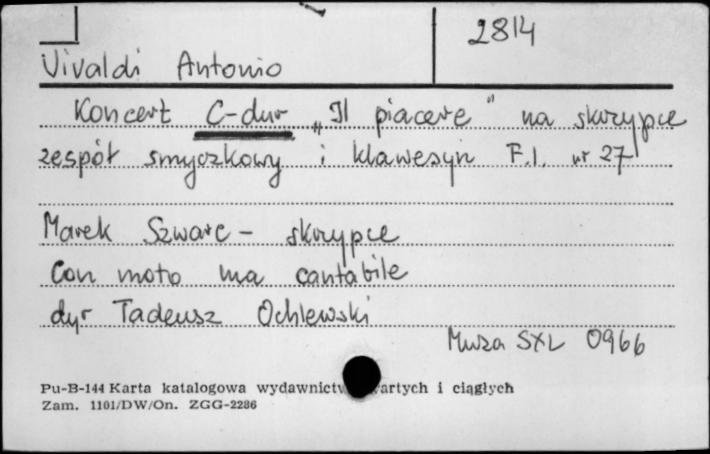 2814
Vivaldi Antonio
Koncert C-dur „Il piacere" na skrzypce
zespół smyczkowy i klawesyn F.I. nr 27
Marek Szwarc - skrzypce
Con moto ma cantabile
dyr Tadeusz Ochlewski
Muza SXL 0966
Pu-B-144 Karta katalogowa wydawnictw zwartych i ciągłych
Zam. 1101/DW/On. ZGG-2286